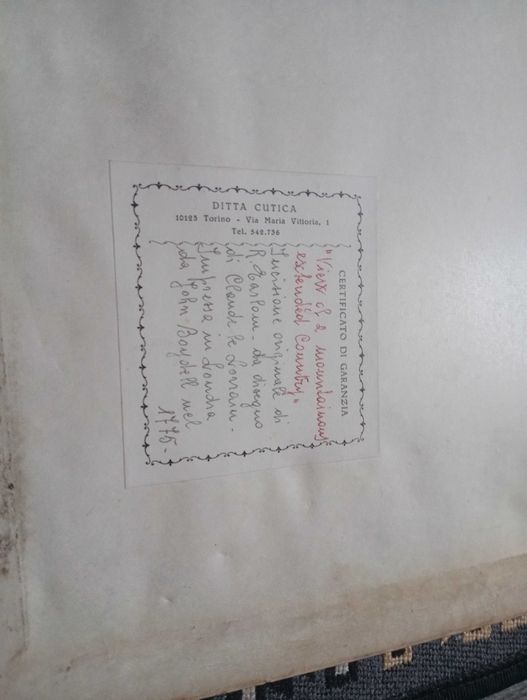 DITTA CUTICA
10123 Torino - Via Maria Vittoria, 1
Tel. 542.736
CERTIFICATO DI GARANZIA
"View of a mountainous
extended Country"
Incisione originale di
R. Earlom - da disegno
di Claude le Lorrain -
Impressa in Londra
da John Boydell nel
1775 -